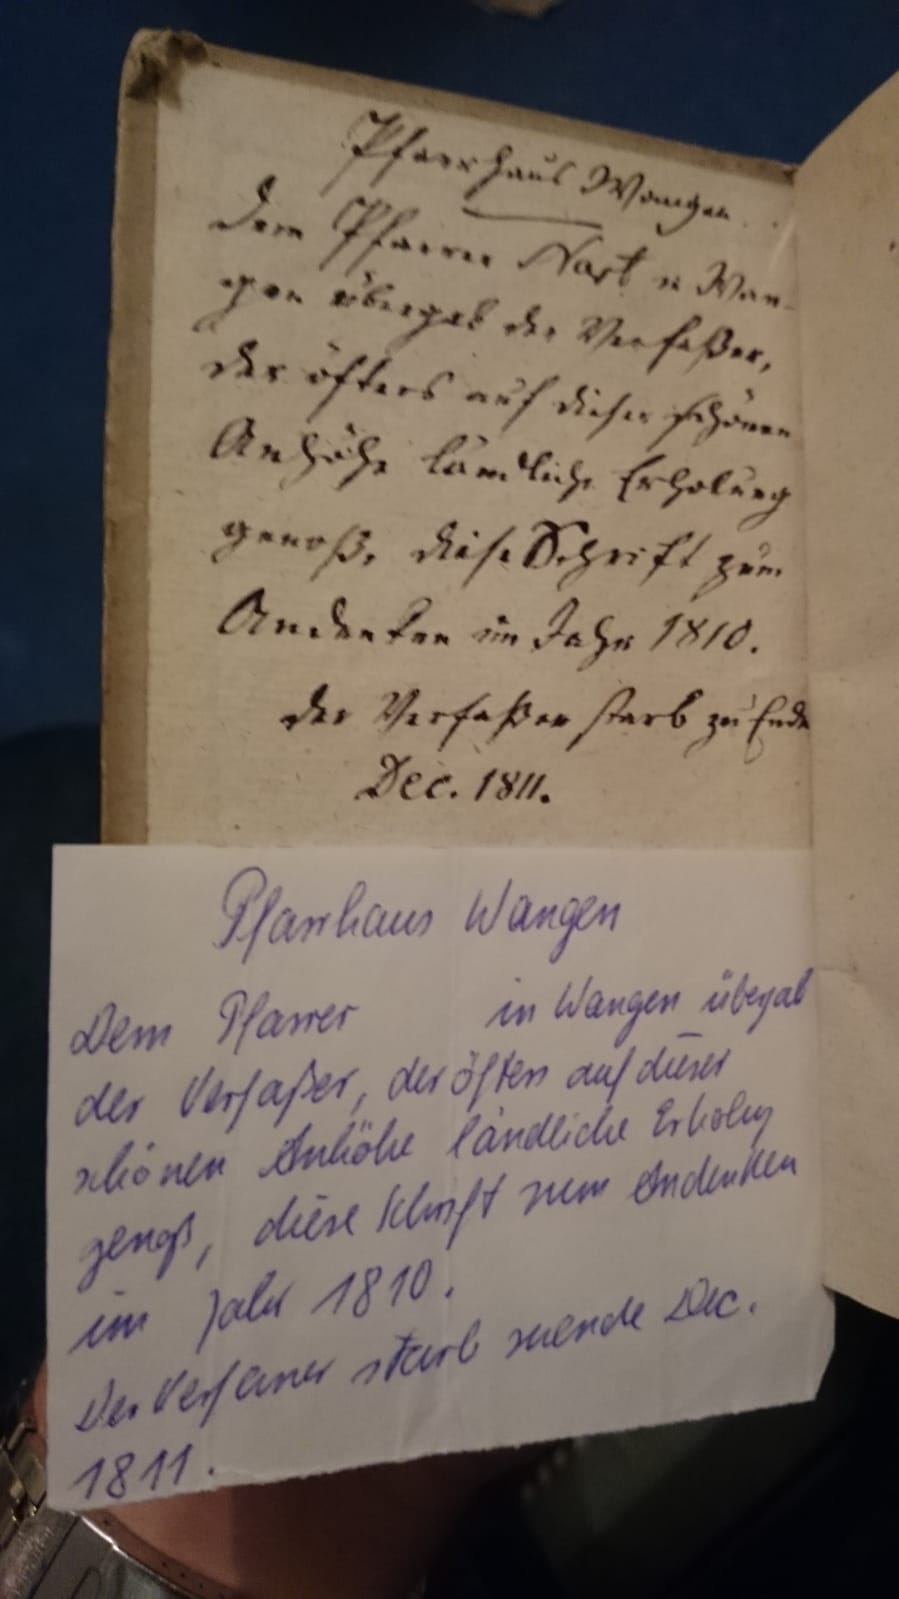 Pfarrhaus Wangen
Dem Pfarrer in Wan-
gen übergab der Verfaßer,
der öfters auf dieser schönen
Anhöhe ländliche Erholung
genoß, diese Schrift zum
Andenken im Jahr 1810.
der Verfaßer starb zu Ende
Dec. 1811.
Pfarrhaus Wangen
Dem Pfarrer in Wangen übergab
der Verfaßer, der öfters auf dieser
schönen Anhöhe ländliche Erholung
genoß, diese Schrift zum Andenken
im Jahr 1810.
Der Verfasser starb zu ende Dec.
1811.